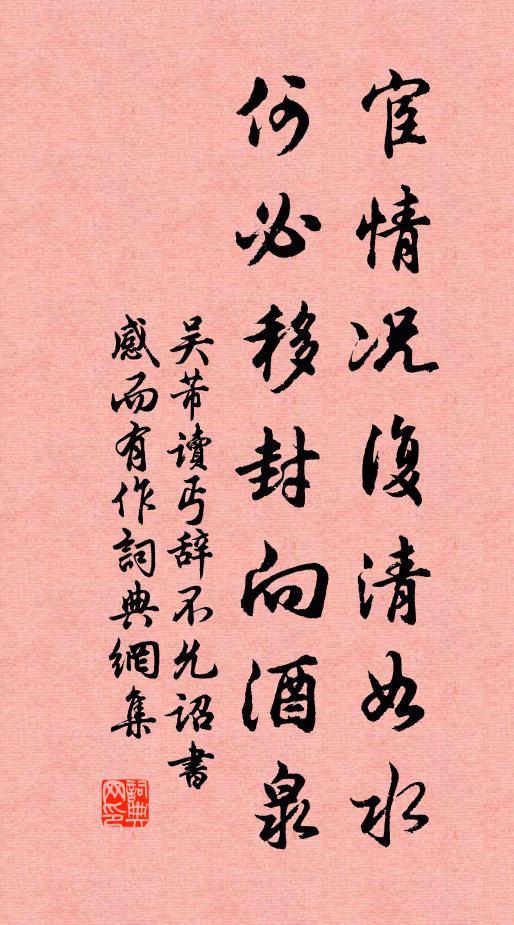 宦情况復清如水
何必移封向酒泉
吴芾讀丐辞不允詔書
感而有作詞典網集
詞典
网印